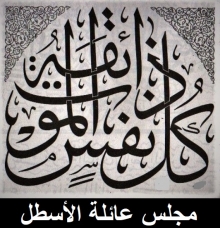 كل نفس ذائقة الموت
مجلس عائلة الأسطل